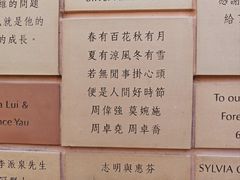 維的問題
就是他的
的成長。
春有百花秋有月
夏有涼風冬有雪
若無閒事掛心頭
便是人間好時節
周偉強 莫婉施
周卓堯 周卓喬
感謝
給
a Lui &
nce Yau
To ou
Fore
6
李派泉先生
志明與惠芬
SYLVIA C